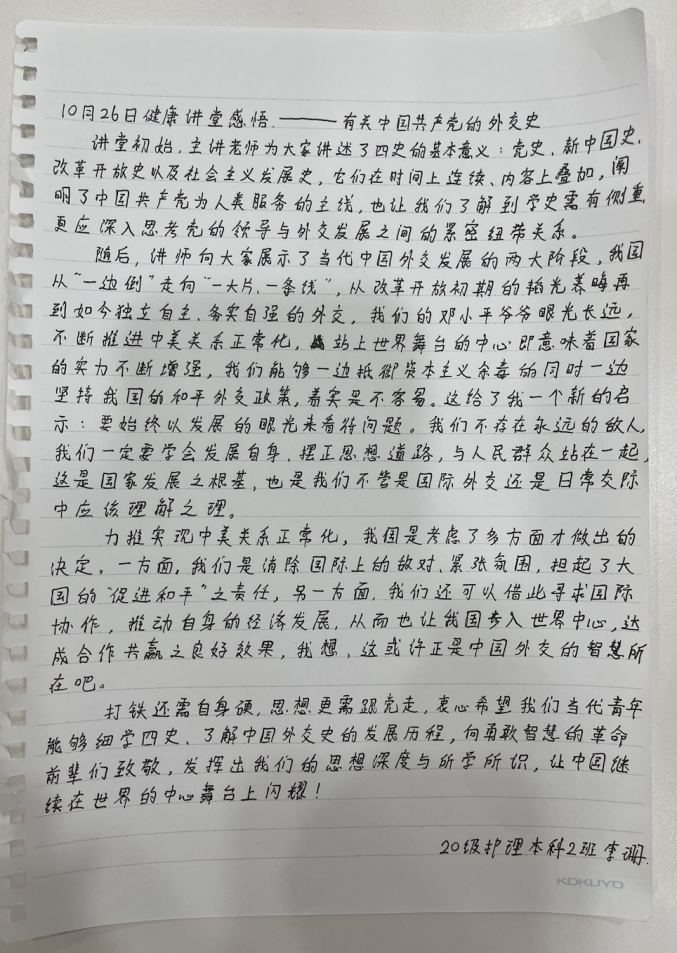 10月26日健康讲堂感悟.——有关中国共产党的外交史
讲堂初始,主讲老师为大家讲述了四史的基本意义:党史、新中国史、
改革开放史以及社会主义发展史,它们在时间上连续、内容上叠加,阐
明了中国共产党为人类服务的主线,也让我们了解到学史需有侧重,
更应深入思考党的领导与外交发展之间的紧密纽带关系。
随后,讲师向大家展示了当代中国外交发展的两大阶段,我国
从“一边倒”走向“一大片、一条线”,从改革开放初期的韬光养晦再
到如今独立自主、务实自强的外交,我们的邓小平爷爷眼光长远,
不断推进中美关系正常化,站上世界舞台的中心即意味着国家
的实力不断增强,我们能够一边抵御资本主义余毒的同时一边
坚持我国的和平外交政策,着实是不容易。这给了我一个新的启
示:要始终以发展的眼光来看待问题。我们不存在永远的敌人,
我们一定要学会发展自身、摆正思想道路,与人民群众站在一起,
这是国家发展之根基,也是我们不管是国际外交还是日常交际
中应该理解之理。
力推实现中美关系正常化,我国是考虑了多方面才做出的
决定。一方面,我们是消除国际上的敌对、紧张氛围,担起了大
国的“促进和平”之责任,另一方面,我们还可以借此寻求国际
协作,推动自身的经济发展,从而也让我国步入世界中心,达
成合作共赢之良好效果,我想,这或许正是中国外交的智慧所
在吧。
打铁还需自身硬,思想更需跟党走,衷心希望我们当代青年
能够细学四史、了解中国外交史的发展历程,向勇敢智慧的革命
前辈们致敬,发挥出我们的思想深度与所学所识,让中国继
续在世界的中心舞台上闪耀!
20级护理本科2班 李珊.
KOKUYO